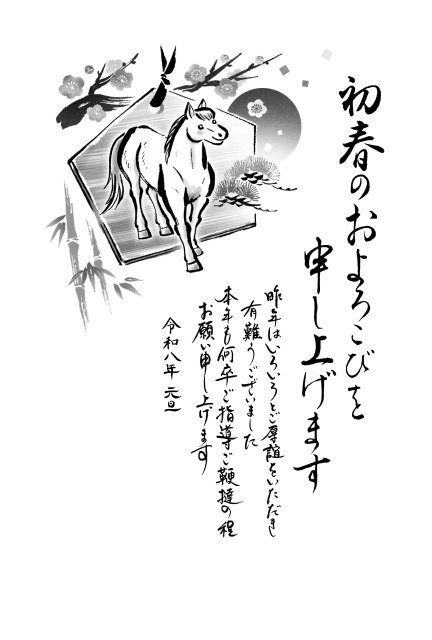 初春のおよろこびを
申し上げます
昨年はいろいろとご厚誼をいただき
有難うございました
本年も何卒ご指導ご鞭撻の程
お願い申し上げます
令和八年 元旦